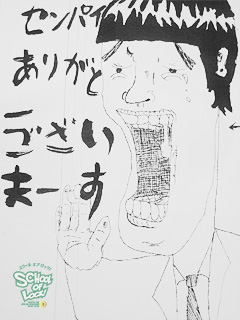 センパイ
ありがと
ござい
まーす
SCHOOL
OF
LOCK!